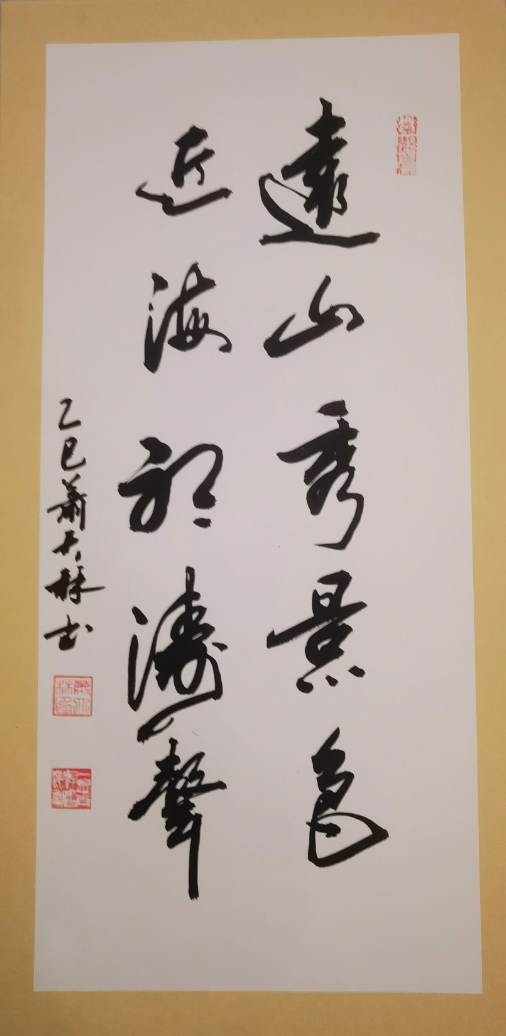 遠山秀景色
近海起濤聲
乙巳蕭大林书